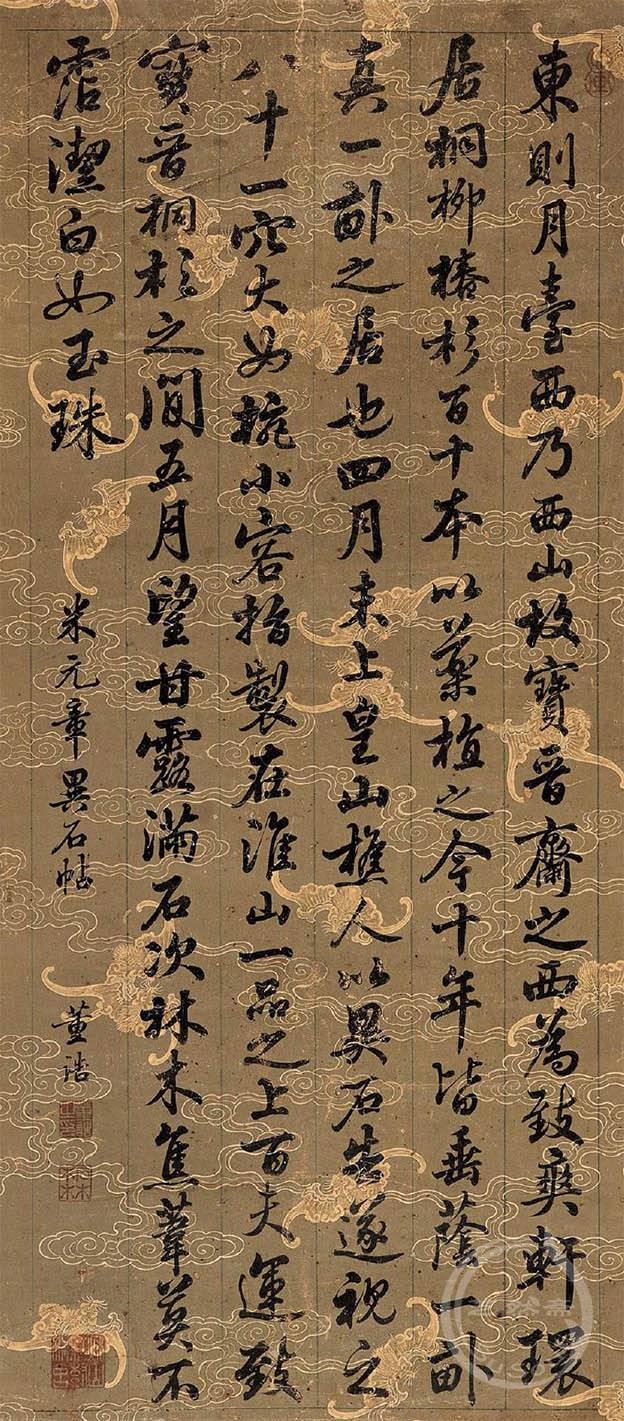 東則月臺西乃西山故寶晉齋之西為致爽軒環
居桐柳椿杉百十本以藥植之今十年皆垂蔭一畝
真一畝之居也四月末上皇山樵人以異石告遂視之
八十一穴大如椀小容指製在淮山一品之上百夫運致
寶晉桐杉之間五月望甘露滿石次林木焦葦莫不
霑潔白如玉珠
米元章異石帖
董誥